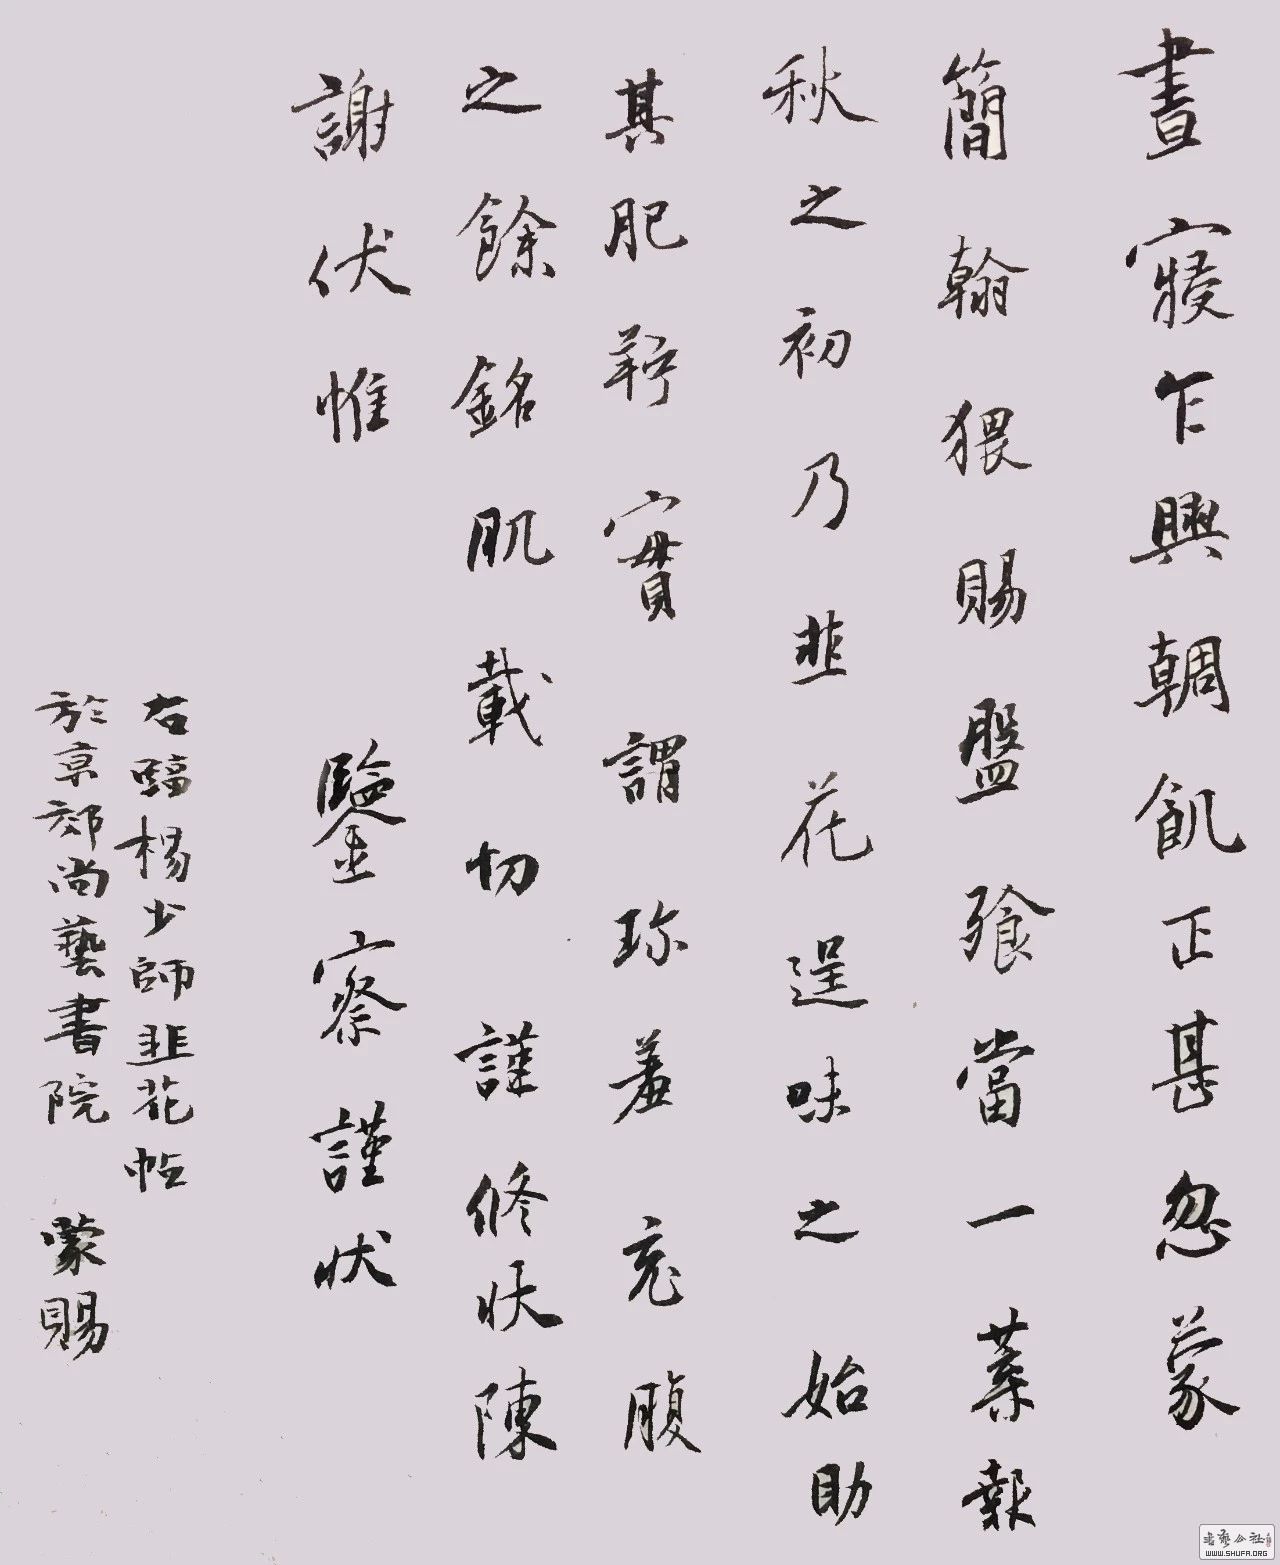 晝寢乍興輖飢正甚忽蒙
簡翰猥賜盤飧當一葉報
秋之初乃韭花逞味之始助
其肥羜實謂珍羞充腹
之餘銘肌載切謹脩狀陳
謝伏惟 鑒察謹狀
右臨楊少師韭花帖
於京郊尚藝書院 蒙賜
书艺公社
WWW.SHUFA.ORG